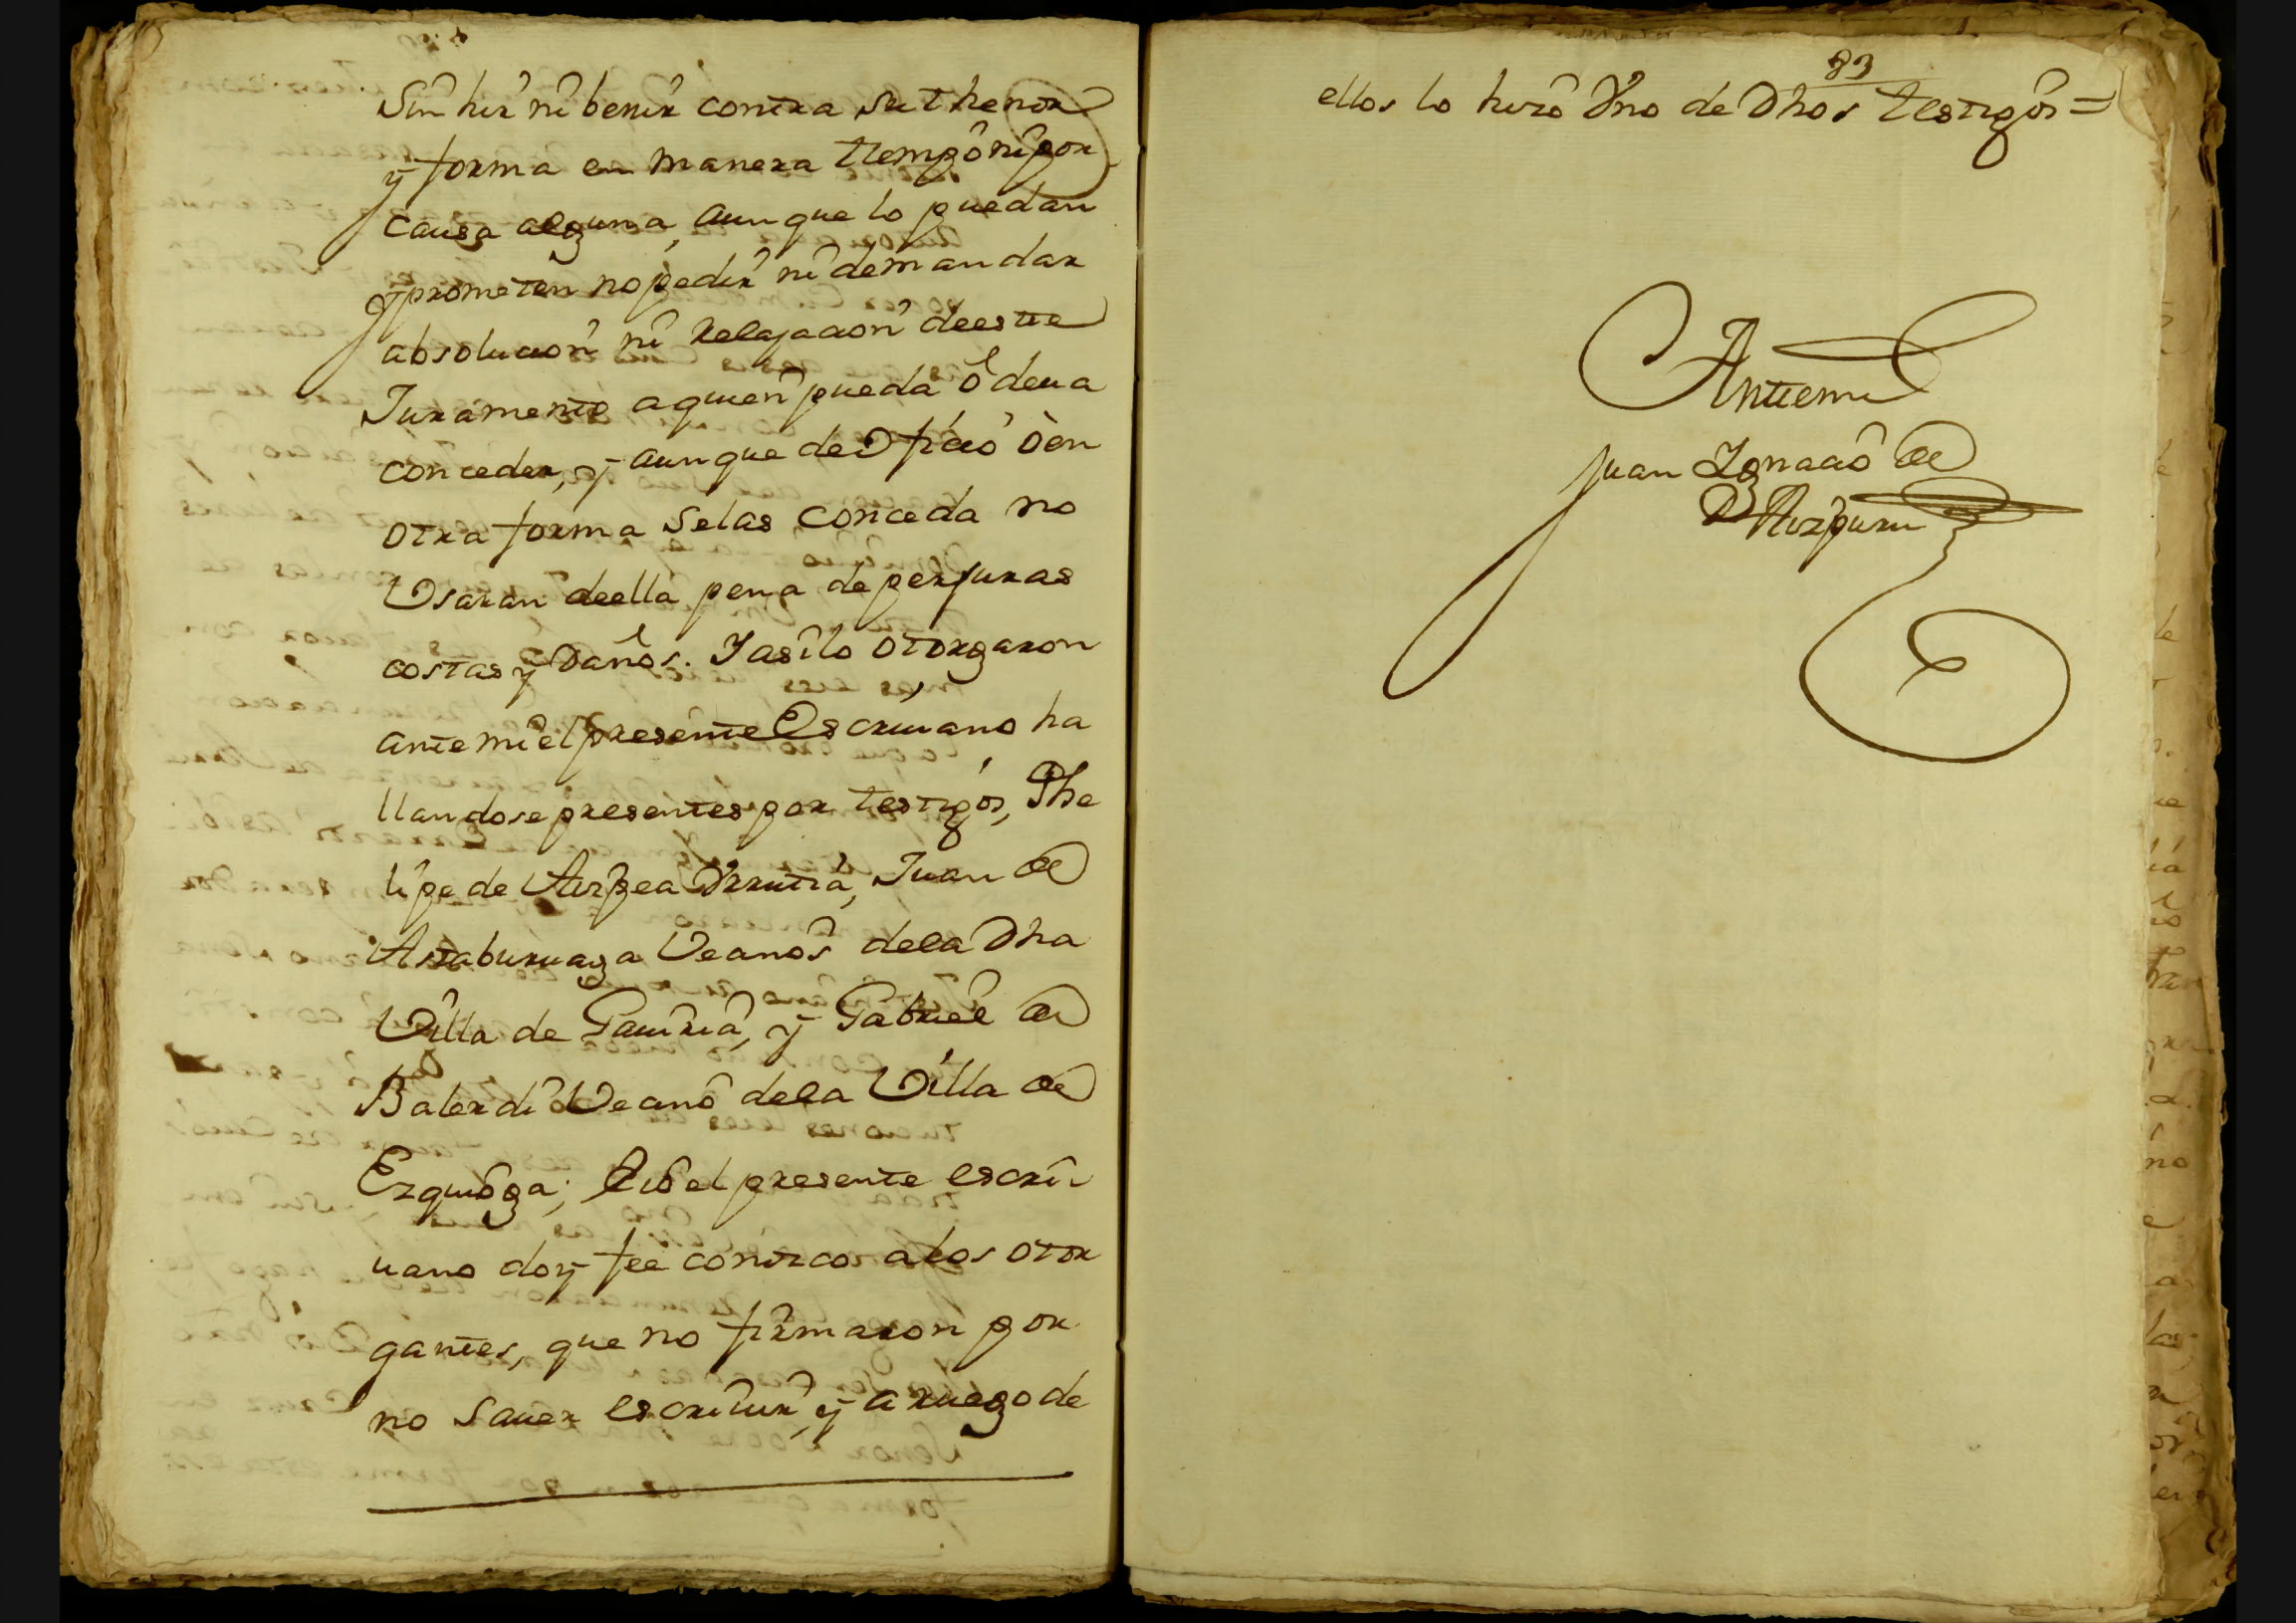 Sin hir ni benir contra su thenor
y forma en manera tiempo ni por
causa alguna, aunque lo puedan
y prometen no pedir ni demandar
absolucion ni relajacion de este
Juramento a quien pueda ô deua
conceder, y aunque de oficio ô en
otra forma se las conceda no
Usaran de ella pena de perjuras
costas y daños. Y asi lo otorgaron
ante mi el presente Escriuano ha
llandose presentes por testigos, Phe
lipe de Aizpea Vrrutia, Juan de
Astaburuaga Vecinos de la dha
Villa de Gauiria, y Gabriel de
Balerdi Vecino de la Villa de
Ezquioga; e Yo el presente escri
uano doy fee conozco a los otor
gantes, que no firmaron por
no sauer escriuir, y a ruego de
83
ellos lo hizo Vno de dhos testigos =
Antemi
Juan Ignacio de
Aizpuru